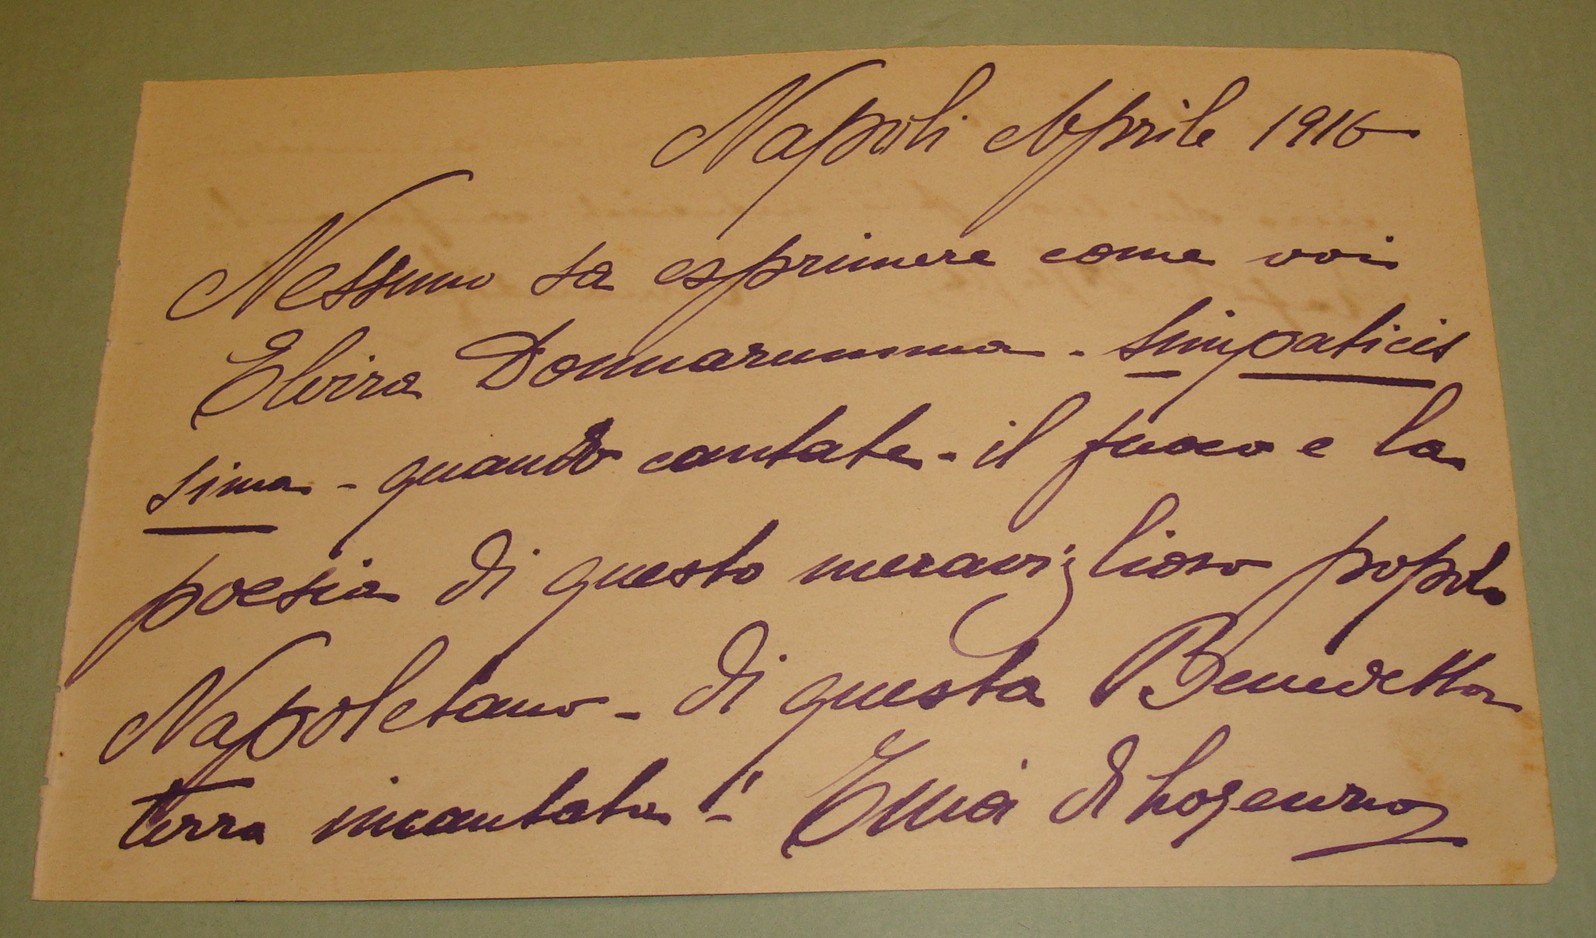 Napoli Aprile 1916
Nessuno sa esprimere come voi
Elvira Donnarumma - simpaticis
sima - quando cantate - il fuoco e la
poesia di questo meraviglioso popolo
Napoletano - di questa Benedetta
terra incantata!!
di Lorenzo